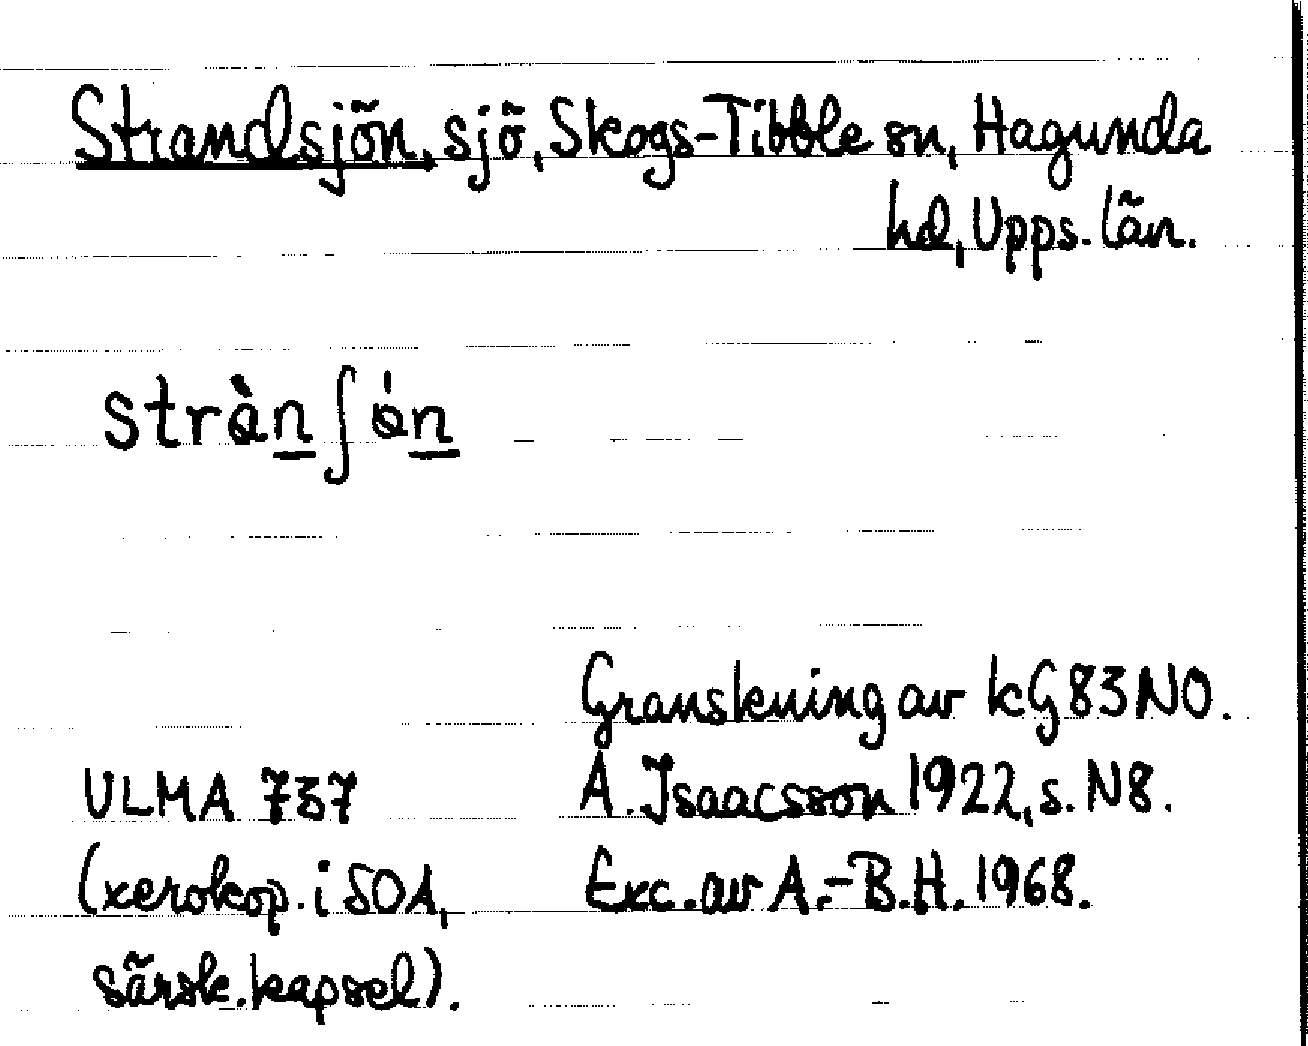 Strandsjön, sjö, Skogs-Tibble sn, Hagunda
hd, Upps. län.
Granskning av kG83NO.
ULMA 737
A. Isaacsson 1922, s. N8.
(xerokop. i SOA,
Exc. av A.-B.H. 1968.
särsk. kapsel).